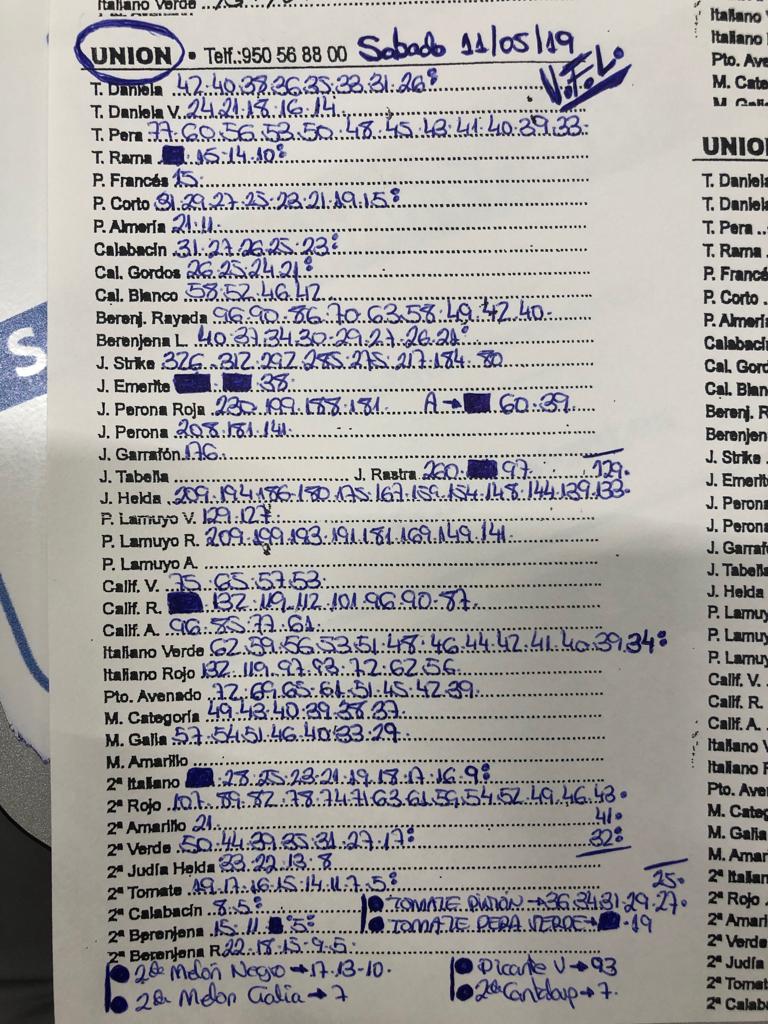 Italiano Verde
UNION • Telf.:950 56 88 00 Sabado 11/05/19
V.F.L.
T. Daniela 42.40.38.36.35.33.31.26:
T. Daniela V. 24.21.18.16.14.
T. Pera 77.60.56.53.50.48.45.43.41.40.39.33.
T. Rama 15.14.10:
P. Francés 15.
P. Corto 31.29.27.25.23.21.19.15:
P. Almería 21.11.
Calabacín 31.27.26.25.23:
Cal. Gordos 26.25.24.21:
Cal. Blanco 58.52.46.42.
Berenj. Rayada 96.90.86.70.63.58.49.42.40.
Berenjena L. 40.37.34.30.29.27.26.21:
J. Strike 326.312.292.285.275.217.184.80
J. Emerite 38.
J. Perona Roja 230.199.188.181. A→ 60.39.
J. Perona 208.181.141.
J. Garrafón 176.
J. Tabella J. Rastra 260. 97. 129.
J. Helda 209.194.186.180.175.167.159.154.148.144.139.133.
P. Lamuyo V. 129.127.
P. Lamuyo R. 209.199.193.191.181.169.149.141.
P. Lamuyo A.
Calif. V. 75.65.57.53.
Calif. R. 132.119.112.101.96.90.87.
Calif. A. 96.85.77.61.
Italiano Verde 62.59.56.53.51.48.46.44.42.41.40.39.34:
Italiano Rojo 132.119.97.93.72.62.56.
Pto. Avenado 72.69.65.61.51.45.42.39.
M. Categoría 49.43.40.39.38.37.
M. Galia 57.54.51.46.40.33.29.
M. Amarillo
2ª Italiano 28.25.23.21.19.18.17.16.9:
2ª Rojo 107.89.82.78.74.71.63.61.59.54.52.49.46.43.
2ª Amarillo 21. 41.
2ª Verde 50.44.39.35.31.27.17: 32:
2ª Judía Helda 33.22.13.8
2ª Tomate 19.17.16.15.14.11.7.5: 25.
2ª Calabacín 8.5: • TOMATE PIÑIÓN→36.34.31.29.27.
2ª Berenjena 15.11. 5: • TOMATE PERA VERDE→ .19
2ª Berenjena R. 22.18.15.9.5.
• 2da Melón Negro→17.13.10. • Picante V→93
• 2da Melon Galia→7 • 2da Cantaloup→7.
Italiano
Italiano
Pto. Ave
M. Cate
M. Galia
UNIO
T. Daniela
T. Daniela
T. Pera
T. Rama
P. Francé
P. Corto
P. Almería
Calabacín
Cal. Gord
Cal. Blan
Berenj. R
Berenjena
J. Strike
J. Emerit
J. Perona
J. Perona
J. Garrafó
J. Tabella
J. Helda
P. Lamuy
P. Lamuy
P. Lamuy
Calif. V.
Calif. R.
Calif. A.
Italiano V
Italiano R
Pto. Aver
M. Categ
M. Galia
M. Amar
2ª Italian
2ª Rojo
2ª Amari
2ª Verde
2ª Judía
2ª Tomat
2ª Calab